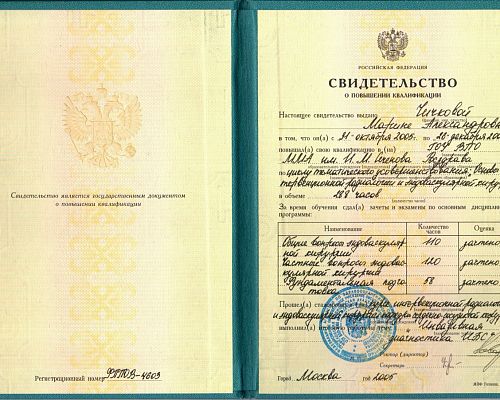 Свидетельство является государственным документом
о повышении квалификации
Регистрационный номер ФППОВ-4603
РОССИЙСКАЯ ФЕДЕРАЦИЯ
СВИДЕТЕЛЬСТВО
О ПОВЫШЕНИИ КВАЛИФИКАЦИИ
Настоящее свидетельство выдано Чичковой
Марине Александровне
в том, что он(а) с 31 октября 2005. по 28 декабря
повысил(а) свою квалификацию в (на) ГОУ ВПО
ММА им. И.М. Сеченова Росздрава
по циклу тематического усовершенствования
и эндоваскулярной
в объеме 288 часов
За время обучения сдал(а) зачеты и экзамены по основным дисциплинам
программы:
Наименование Количество часов Оценка
Общие вопросы эндоваскуляр- 110 зачтено
ной хирургии
Частные вопросы эндовас- 120 зачтено
кулярной хирургии
Фундаментальная подго- 58 зачтено
товка
Прошел(а) интервенционной
и эндоваскулярной хирургии
выполнил(а) Инвазивная
диагностика ИБС
Ректор (директор)
Секретарь
Город Москва год 2005